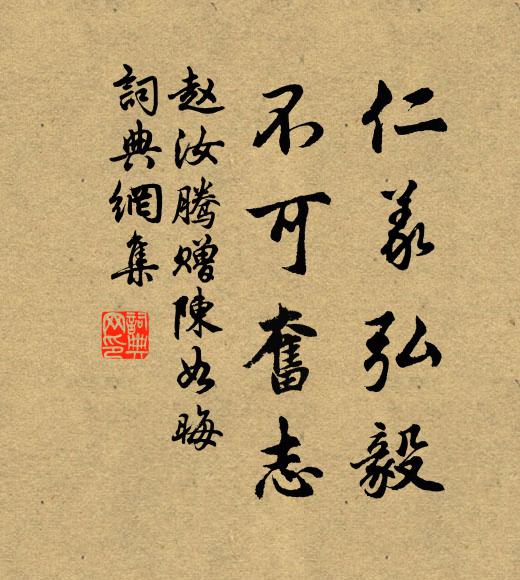 仁義弘毅
不可奮志
赵汝腾赠陳如晦
詞典網集
詞典網印